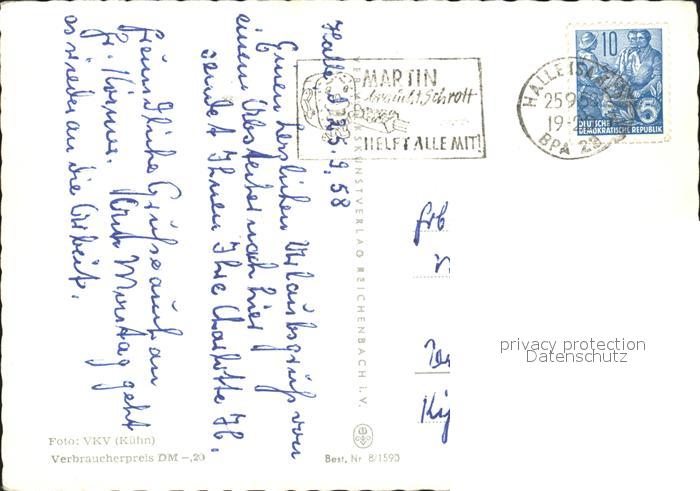 Halle, d. 25.9.58
Einen herzlichen Urlaubsgruß von
einem Abstecher nach hier
sendet Ihnen Ihre Charlotte H.
Freundliche Grüße auch an
Fr. Körner. Am Montag geht
es wieder an die Arbeit.
MARTIN
braucht Schrott
HELFT ALLE MIT!
HALLE (SAALE)
25.9.58
19-
BPA 28
10
5
DEUTSCHE
DEMOKRATISCHE REPUBLIK
KUNSTVERLAG REICHENBACH I. V.
Frl
privacy protection
Datenschutz
Foto: VKV (Kühn)
Verbraucherpreis DM -,20
Best. Nr 8/1590